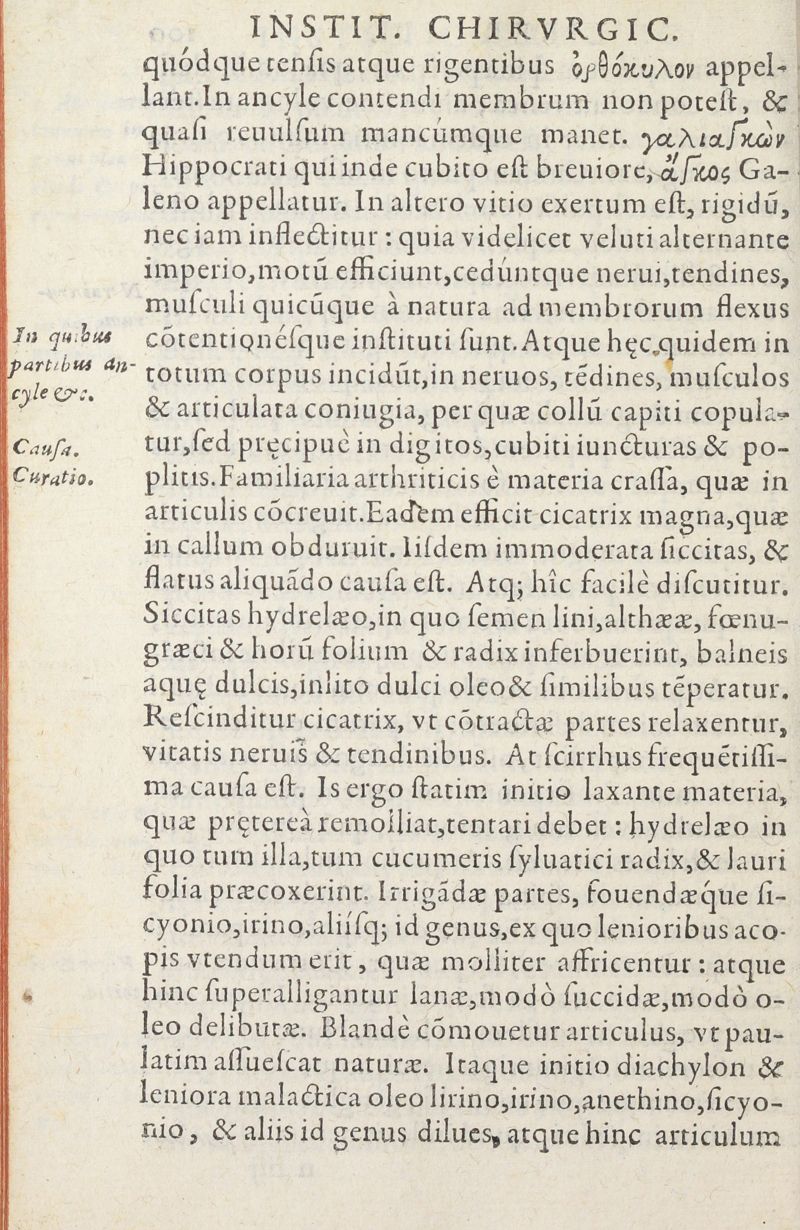 INSTIT. CHIRVRGIC.
quódque tensis atque rigentibus ὀρθόκυλον appel-
lant. In ancyle contendi membrum non potest, &
quasi reuulsum mancúmque manet. γαλιαγκὼν
Hippocrati qui inde cubito est breuiore, Ga-
leno appellatur. In altero vitio exertum est, rigidū,
nec iam inflectitur : quia videlicet veluti alternante
imperio, motū efficiunt, cedúntque nerui, tendines,
musculi quicūque à natura ad membrorum flexus
In quibus
cōtentionésque instituti sunt. Atque hęc quidem in
partibus an-
totum corpus incidūt, in neruos, tēdines, musculos
cyle &c.
& articulata coniugia, per quæ collū capiti copula-
Causa.
tur, sed pręcipuè in digitos, cubiti iuncturas & po-
Curatio.
plitis. Familiaria arthriticis è materia crassa, quæ in
articulis cōcreuit. Eadem efficit cicatrix magna, quæ
in callum obduruit. Iisdem immoderata siccitas, &
flatus aliquādo causa est. Atq; hîc facilè discutitur.
Siccitas hydrelæo, in quo semen lini, althææ, fœnu-
græci & horū folium & radix inferbuerint, balneis
aquę dulcis, inlito dulci oleo & similibus tēperatur.
Rescinditur cicatrix, vt cōtractæ partes relaxentur,
vitatis neruis & tendinibus. At scirrhus frequētissi-
ma causa est. Is ergo statim initio laxante materia,
quæ prętereà remolliat, tentari debet : hydrelæo in
quo tum illa, tum cucumeris syluatici radix, & lauri
folia præcoxerint. Irrigādæ partes, fouendæque si-
cyonio, irino, aliísq; id genus, ex quo lenioribus aco-
pis vtendum erit, quæ molliter affricentur : atque
hinc superalligantur lanæ, modò succidæ, modò o-
leo delibutæ. Blandè cōmouetur articulus, vt pau-
latim assuescat naturæ. Itaque initio diachylon &
leniora malactica oleo lirino, irino, anethino, sicyo-
nio, & aliis id genus dilues, atque hinc articulum